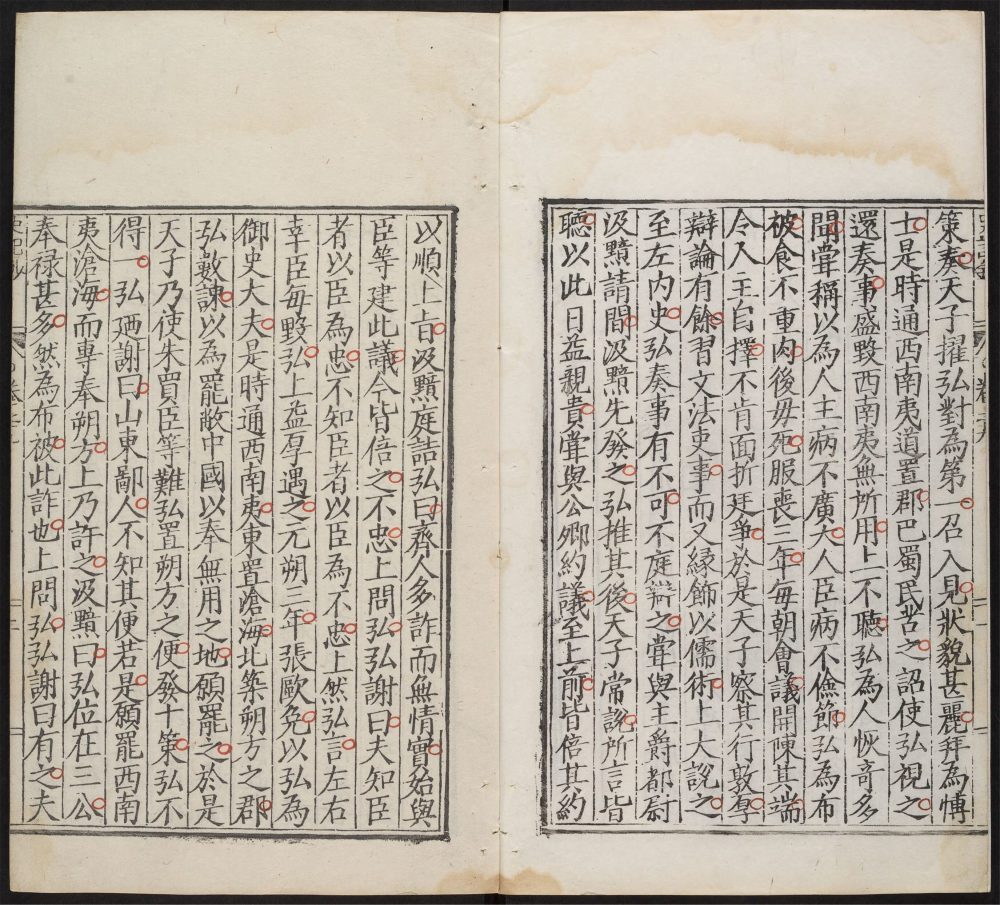 策奏天子擢弘對為第一召入見狀貌甚麗拜為博
士是時通西南夷道置郡巴蜀民苦之詔使弘視之
還奏事盛毀西南夷無所用上不聽弘為人恢奇多
聞甞稱以為人主病不廣大人臣病不儉節弘為布
被食不重肉後毋死服喪三年每朝會議開陳其端
令人主自擇不肯面折廷爭於是天子察其行敦厚
辯論有餘習文法吏事而又縁飾以儒術上大說之
至左內史弘奏事有不可不庭辯之甞與主爵都尉
汲黯請間汲黯先發之弘推其後天子常說所言皆
聽以此日益親貴甞與公卿約議至上前皆倍其約
以順上旨汲黯庭詰弘曰齊人多詐而無情實始與
臣等建此議今皆倍之不忠上問弘弘謝曰夫知臣
者以臣為忠不知臣者以臣為不忠上然弘言左右
幸臣每毀弘上益厚遇之元朔三年張歐免以弘為
御史大夫是時通西南夷東置滄海北築朔方之郡
弘數諫以為罷敝中國以奉無用之地願罷之於是
天子乃使朱買臣等難弘置朔方之便發十策弘不
得一弘廼謝曰山東鄙人不知其便若是願罷西南
夷滄海而專奉朔方上乃許之汲黯曰弘位在三公
奉祿甚多然為布被此詐也上問弘弘謝曰有之夫